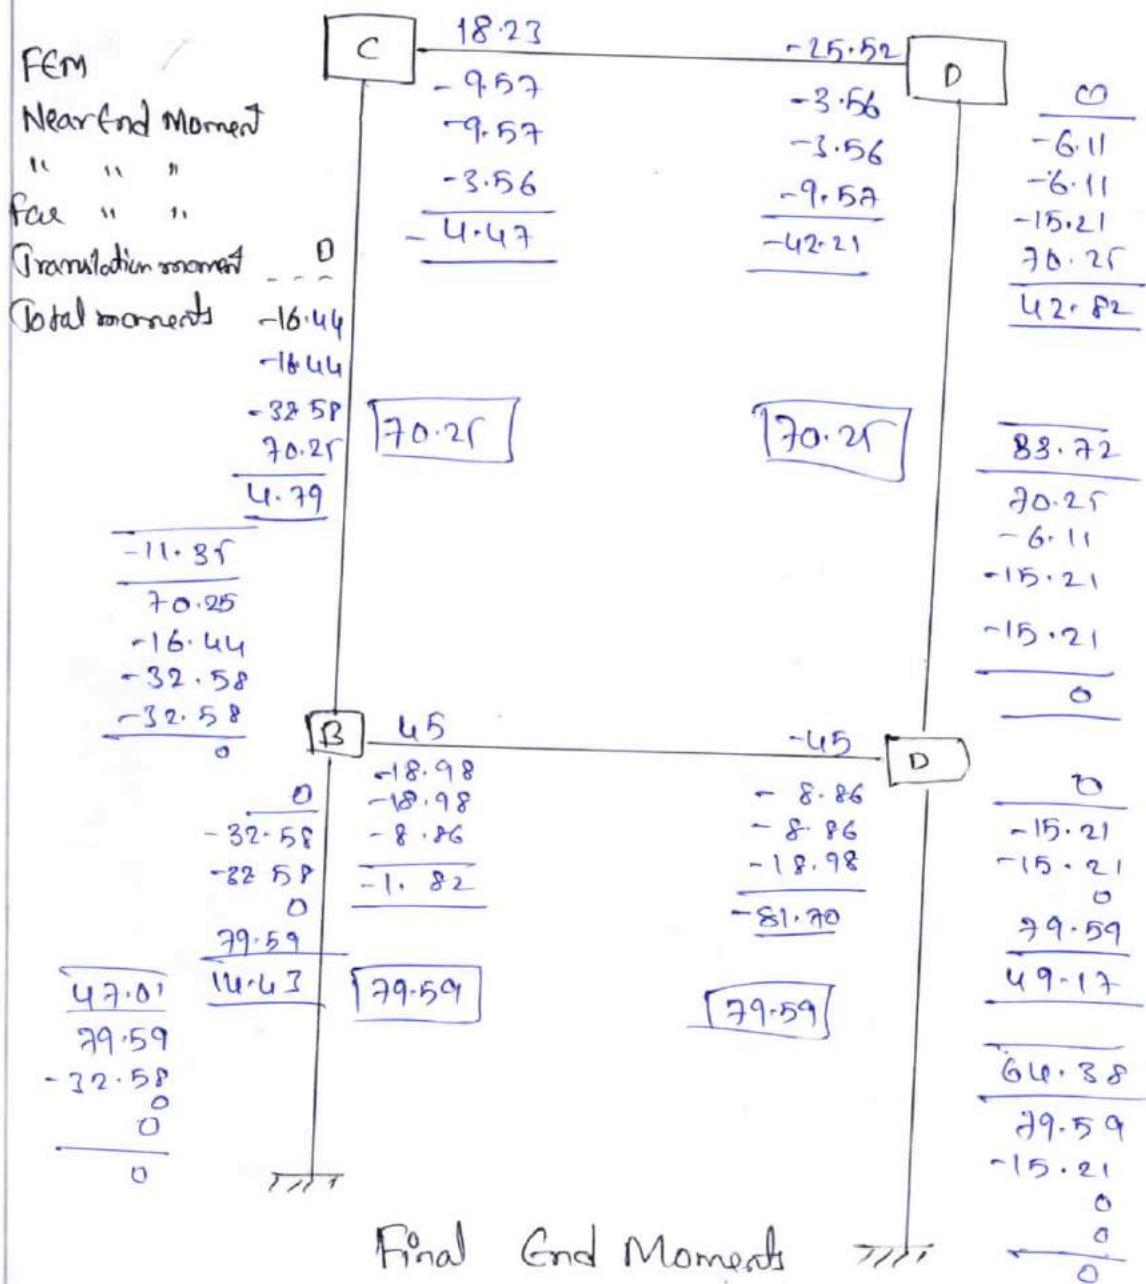 FEM
Near End Moment
" " "
Far " "
Translation moment
Total moments
C
18.23
-9.57
-9.57
-3.56
-4.47
-25.52
-3.56
-3.56
-9.57
-42.21
D
0
-6.11
-6.11
-15.21
70.25
42.82
0
-16.44
-16.44
-32.58
70.25
4.79
70.25
70.25
83.72
70.25
-6.11
-15.21
-15.21
0
-11.35
70.25
-16.44
-32.58
-32.58
0
B
45
-18.98
-18.98
-8.86
-1.82
-45
-8.86
-8.86
-18.98
-81.70
D
0
-15.21
-15.21
0
79.59
49.17
0
-32.58
-32.58
0
79.59
14.43
79.59
79.59
47.01
79.59
-32.58
0
0
0
64.38
79.59
-15.21
0
0
0
Final End Moments